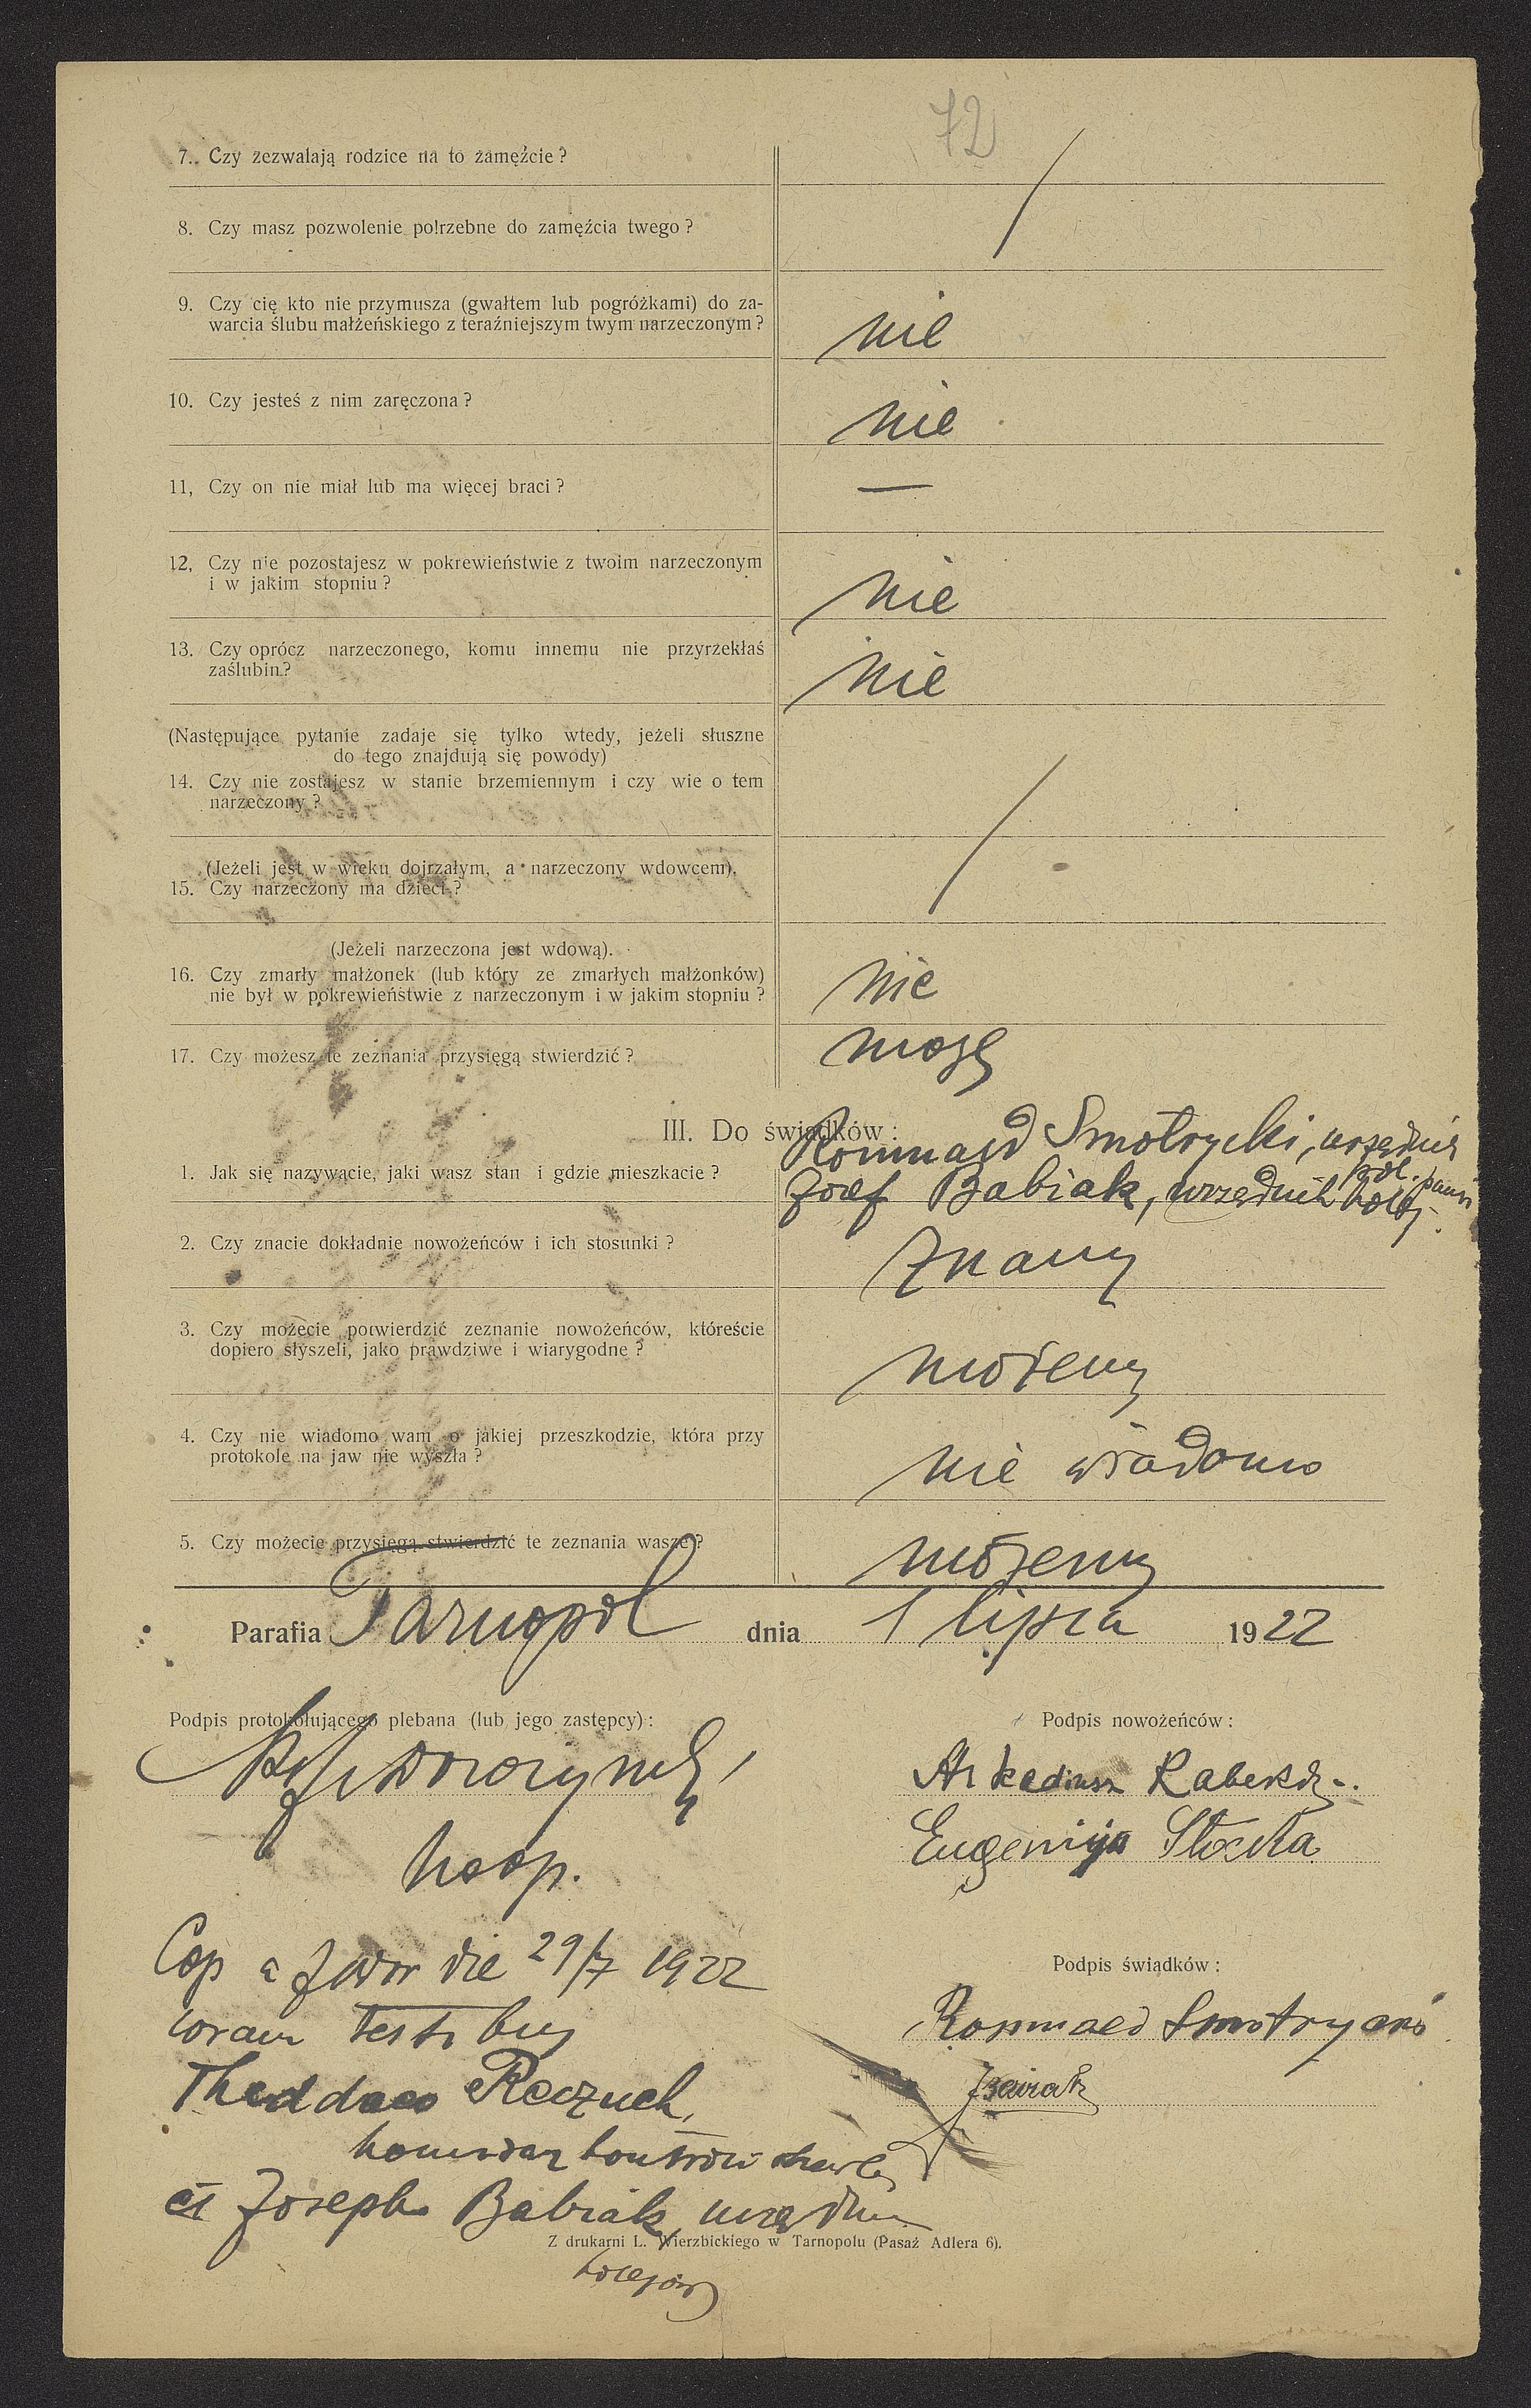 72
7. Czy zezwalają rodzice na to zamęźcie?
8. Czy masz pozwolenie potrzebne do zamęźcia twego?
9. Czy cię kto nie przymusza (gwałtem lub pogróżkami) do za-
warcia ślubu małżeńskiego z teraźniejszym twym narzeczonym?
nie
10. Czy jesteś z nim zaręczona?
nie
11, Czy on nie miał lub ma więcej braci?
—
12, Czy nie pozostajesz w pokrewieństwie z twoim narzeczonym
i w jakim stopniu?
nie
13. Czy oprócz narzeczonego, komu innemu nie przyrzekłaś
zaślubin?
nie
(Następujące pytanie zadaje się tylko wtedy, jeżeli słuszne
do tego znajdują się powody)
14. Czy nie zostajesz w stanie brzemiennym i czy wie o tem
narzeczony?
(Jeżeli jest w wieku dojrzałym, a narzeczony wdowcem).
15. Czy narzeczony ma dzieci?
(Jeżeli narzeczona jest wdową).
16. Czy zmarły małżonek (lub który ze zmarłych małżonków)
nie był w pokrewieństwie z narzeczonym i w jakim stopniu?
nie
17. Czy możesz te zeznania przysięgą stwierdzić?
mogę
III. Do świadków:
Romuald Smotrycki, urzędnik
pol. pańs
1. Jak się nazywacie, jaki wasz stan i gdzie mieszkacie?
Józef Babiak, urzędnik kolej.
2. Czy znacie dokładnie nowożeńców i ich stosunki?
Znamy
3. Czy możecie potwierdzić zeznanie nowożeńców, któreście
dopiero słyszeli, jako prawdziwe i wiarygodne?
możemy
4. Czy nie wiadomo wam o jakiej przeszkodzie, która przy
protokole na jaw nie wyszła?
nie wiadomo
5. Czy możecie przysięgą stwierdzić te zeznania wasze?
możemy
Parafia Tarnopol dnia 1 lipca 1922
Podpis protokołującego plebana (lub jego zastępcy):
Podpis nowożeńców:
Arkadiusz
Eugenija
koop.
Cop a die 29/7 1922
coram testibus
Podpis świądków:
Romuald Smotrycki
JBabiak
Thaddaeo Reczuch,
et Josepho Babiak, urzędnik
Z drukarni L. Wierzbickiego w Tarnopolu (Pasaż Adlera 6).
kolejowy